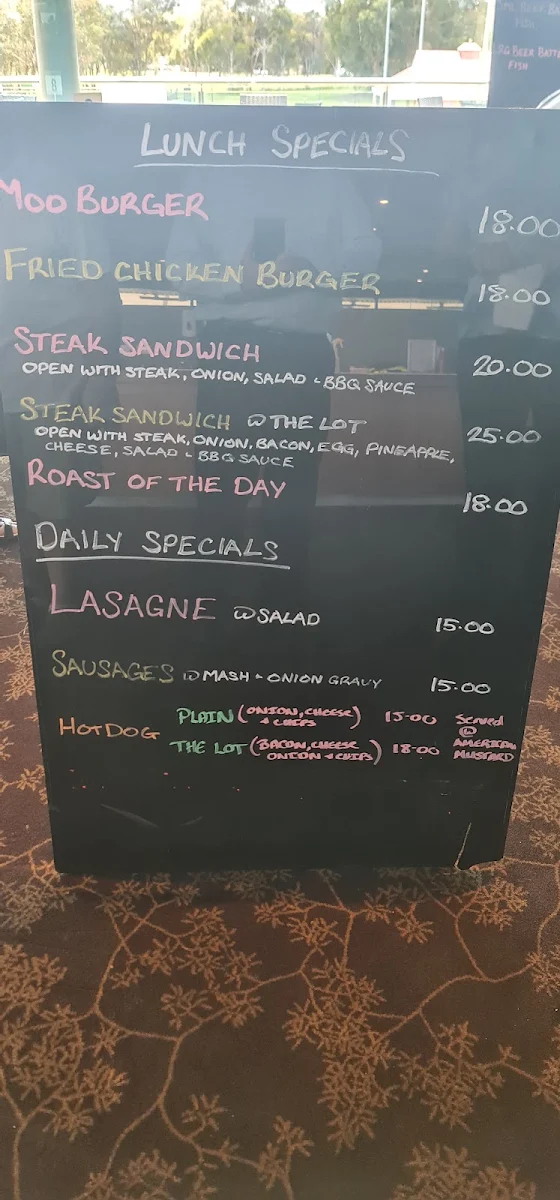 LUNCH SPECIALS
MOO BURGER 18.00
FRIED CHICKEN BURGER 18.00
STEAK SANDWICH 20.00
OPEN WITH STEAK, ONION, SALAD & BBQ SAUCE
STEAK SANDWICH W THE LOT 25.00
OPEN WITH STEAK, ONION, BACON, EGG, PINEAPPLE,
CHEESE, SALAD & BBQ SAUCE
ROAST OF THE DAY 18.00
DAILY SPECIALS
LASAGNE W SALAD 15.00
SAUSAGES W MASH & ONION GRAVY 15.00
HOTDOG
PLAIN (ONION, CHEESE & CHIPS) 15.00
THE LOT (BACON, CHEESE ONION & CHIPS) 18.00
Served
W
AMERICAN
MUSTARD
BEER BATTE
FISH